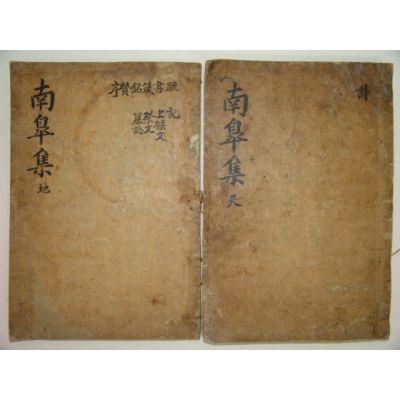 詩
南皐集 天
疏書箴銘贊序
記
上樑文
祭文
墓誌
南皐集 地